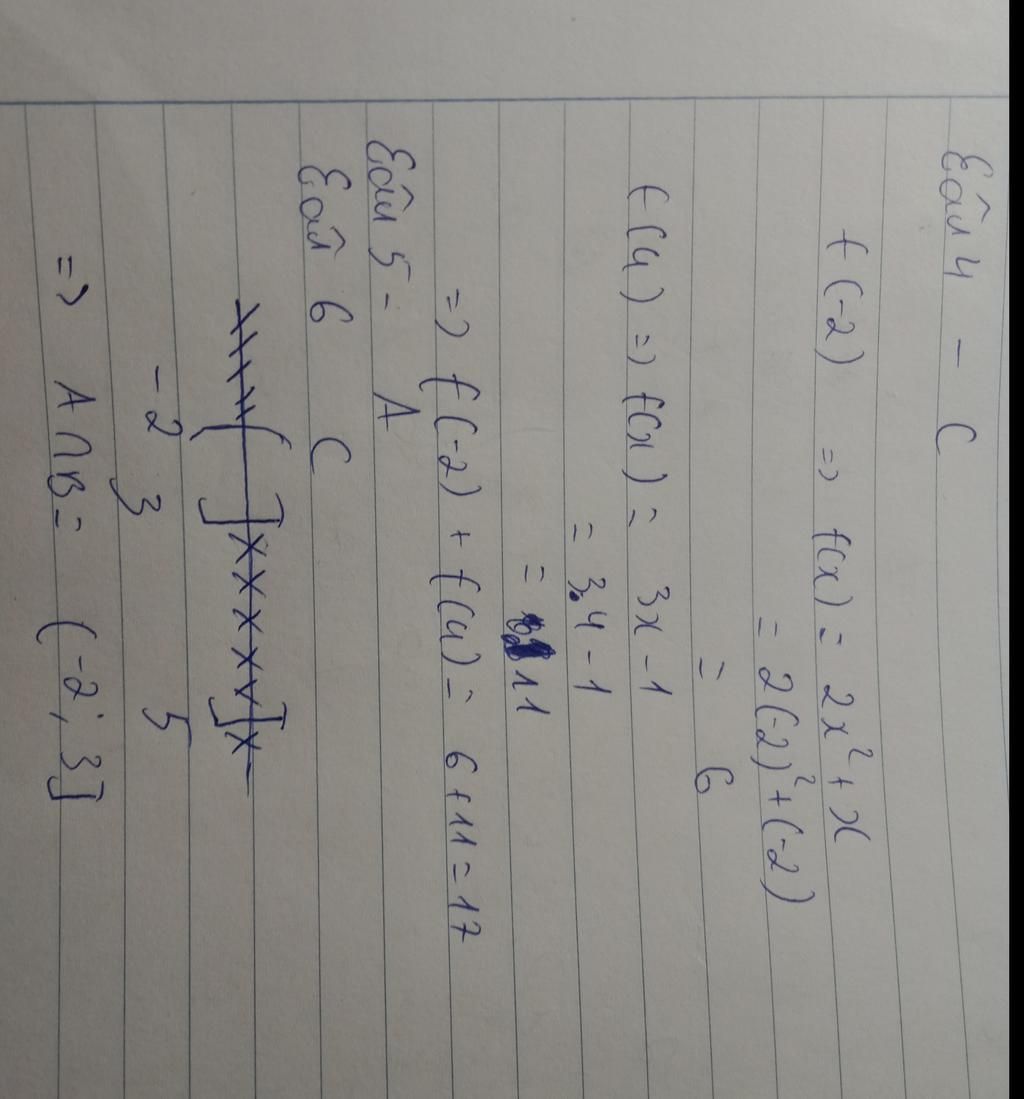 Câu 4 - C
f(-2) => f(x) = 2x² + x
= 2(-2)² + (-2)
= 6
f(4) => f(x) = 3x - 1
= 3.4 - 1
= 11
=> f(-2) + f(4) = 6 + 11 = 17
Câu 5 - A
Câu 6 C
-2 3 5
=> A ∩ B = (-2; 3]